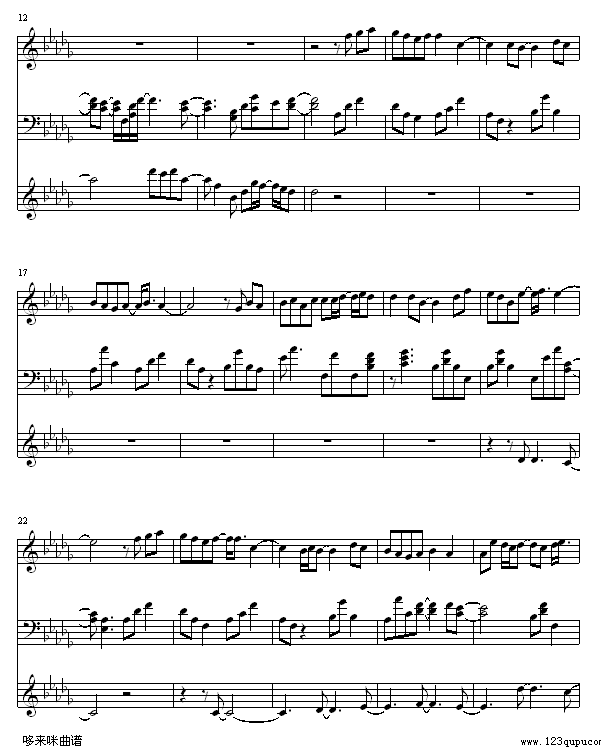 12
17
22
哆来咪曲谱
www.123qupu.com